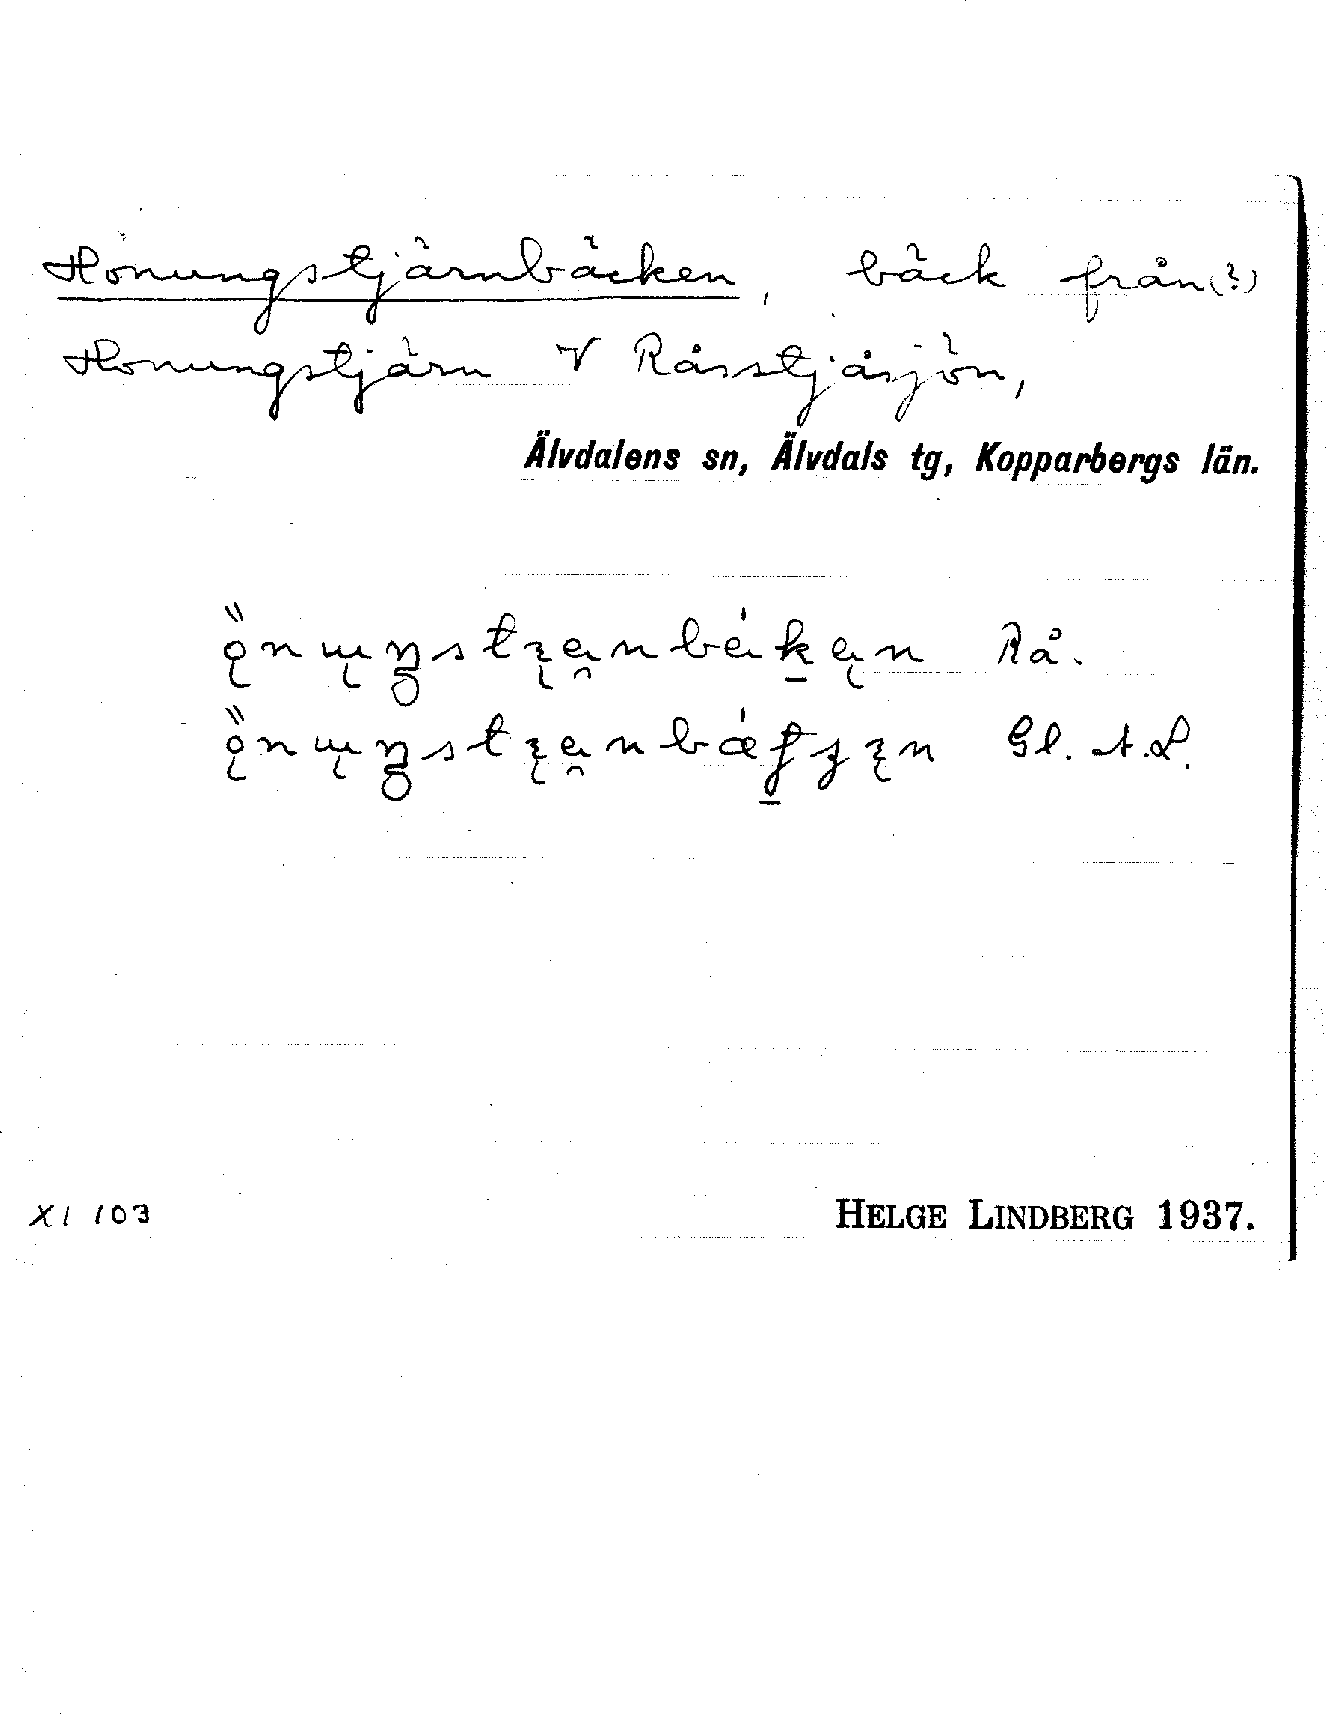 Honungstjärnbäcken, bäck från(?)
Honungstjärn V Råsstjåsjön,
Älvdalens sn, Älvdals tg, Kopparbergs län.
Rå.
Gl. A.L.
XI 103
HELGE LINDBERG 1937.